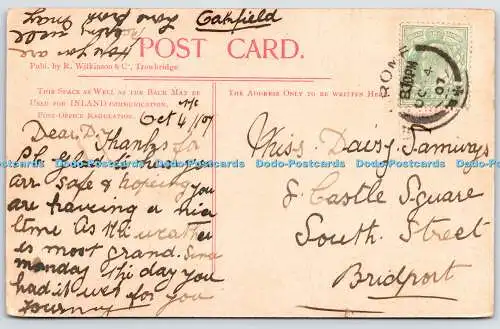 Oakfield
POST CARD.
Publ. by R. Wilkinson & Co., Trowbridge
THIS SPACE AS WELL AS THE BACK MAY BE
USED FOR INLAND COMMUNICATION.
POST-OFFICE REGULATION.
THE ADDRESS ONLY TO BE WRITTEN HERE
Oct 4/07
Dear D. Thanks for
P.C. glad to hear you
arr safe & hopeing you
are haveing a nice
time as the weather
is most grand. Since
monday the day you
had it wet for you
Journey
Miss Daisy Samways
8. Castle Square
South Street
Bridport
Dodo-Postcards Dodo-Postcards Dodo-Postcards Dodo-Postcards Dodo-Postcards